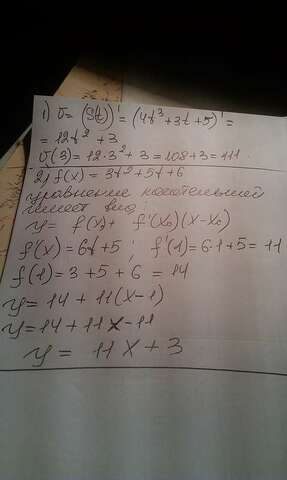 1) v = (St)' = (4t³+3t+5)' =
= 12t² + 3
v(3) = 12·3² + 3 = 108+3 = 111
2) f(x) = 3t² + 5t + 6
уравнение касательной
имеет вид:
y = f(x₀) + f'(x₀)(x-x₀)
f'(x) = 6t+5; f'(1) = 6·1+5 = 11
f(1) = 3+5+6 = 14
y = 14 + 11(x-1)
y = 14 + 11x - 11
y = 11x + 3